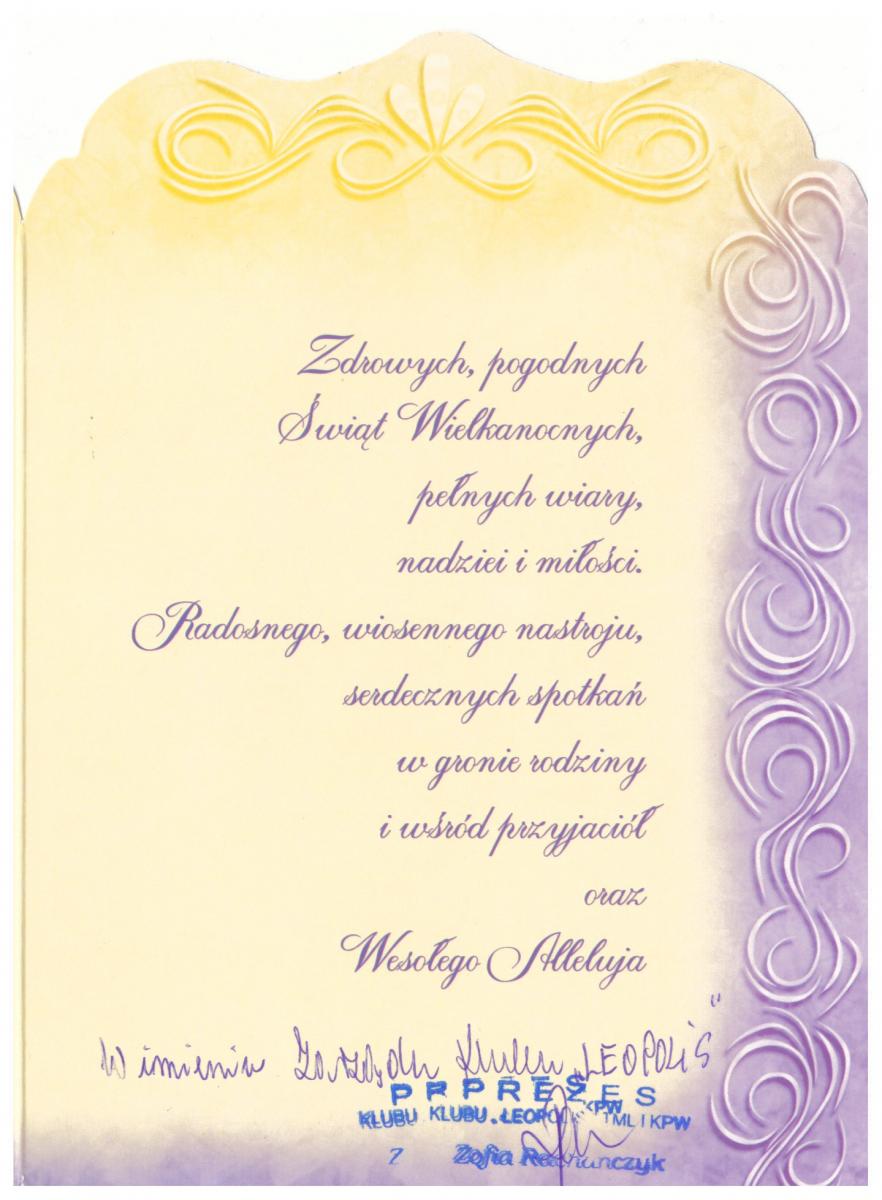 Zdrowych, pogodnych
Świąt Wielkanocnych,
pełnych wiary,
nadziei i miłości.
Radosnego, wiosennego nastroju,
serdecznych spotkań
w gronie rodziny
i wśród przyjaciół
oraz
Wesołego Alleluja
W imieniu Zarządu Klubu „LEOPOLIS”
PRPREZES
KLUBU KLUBU TML I KPW
Zofia